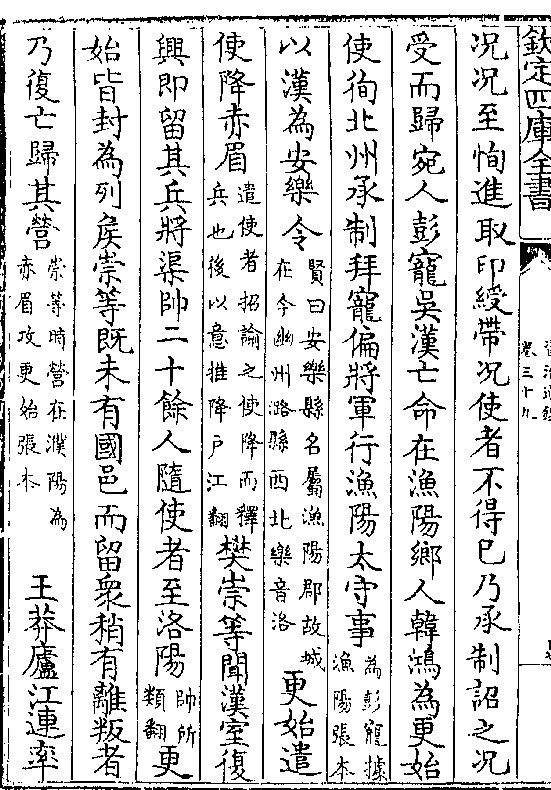 欽定四庫全書
卷三十九
况况至恂進取印綬帶况使者不得已乃承制詔之况
受而歸宛人彭寵吳漢亡命在漁陽鄉人韓鴻為更始
使徇北州承制拜寵偏將軍行漁陽太守事為彭寵據漁陽張本
以漢為安樂令賢曰安樂縣名屬漁陽郡故城在今幽州潞縣西北樂音洛更始遣
使降赤眉遣使者招諭之使降而釋兵也後以意推降户江翻樊崇等聞漢室復
興即留其兵將渠帥二十餘人隨使者至洛陽帥所類翻更
始皆封為列侯崇等既未有國邑而留衆稍有離叛者
乃復亡歸其營崇等時營在濮陽為赤眉攻更始張本王莽廬江連率